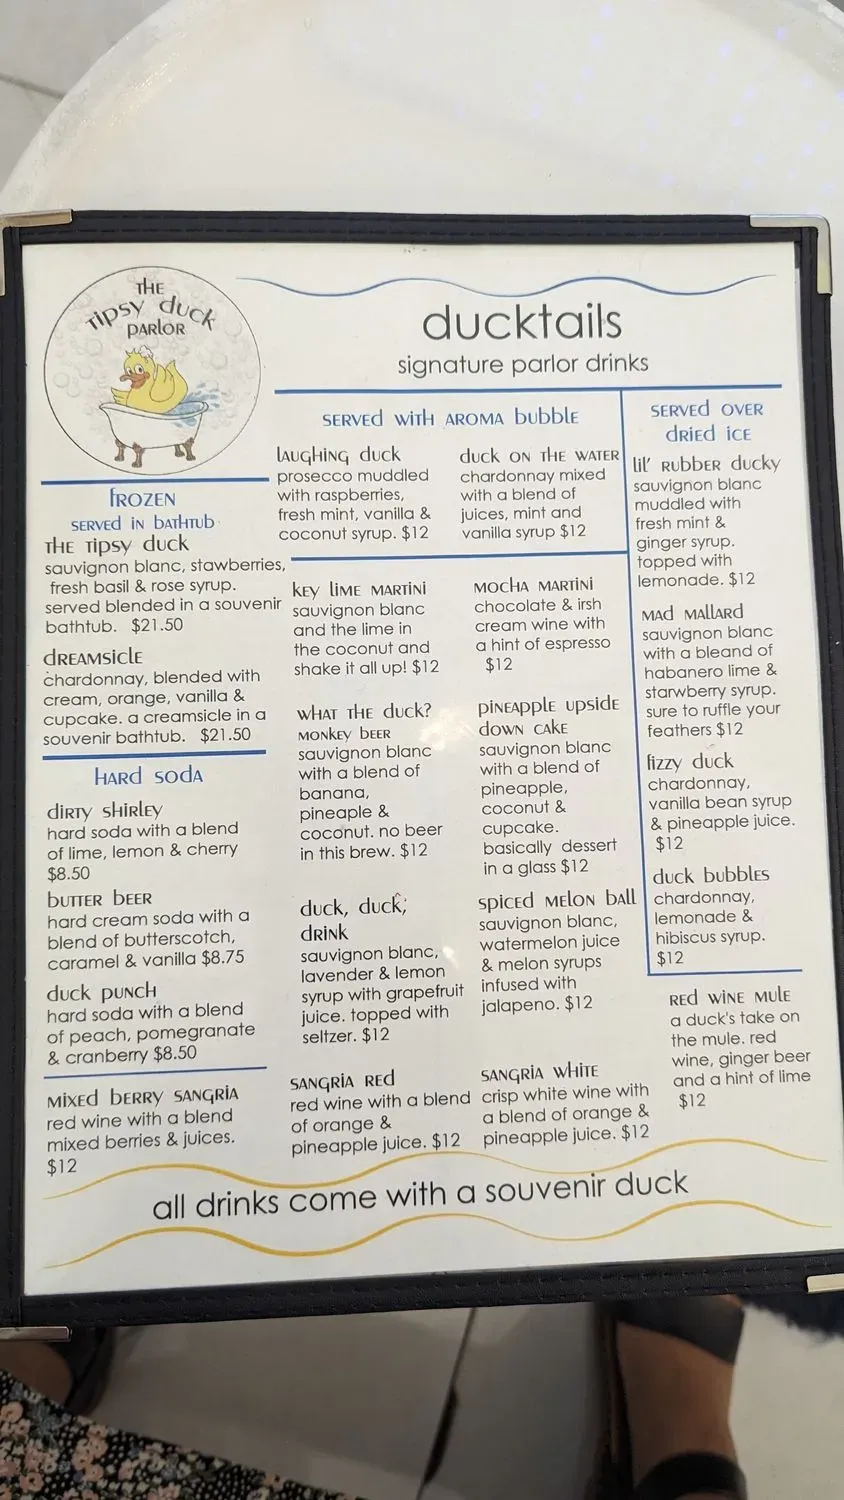 THE
Tipsy duck
PARLOR
ducktails
signature parlor drinks
FROZEN
SERVED IN BATHTUB
THE Tipsy duck
sauvignon blanc, stawberries,
fresh basil & rose syrup.
served blended in a souvenir
bathtub. $21.50
dREAMSiclE
chardonnay, blended with
cream, orange, vanilla &
cupcake. a creamsicle in a
souvenir bathtub. $21.50
HARd SOdA
diRTy SHiRLEy
hard soda with a blend
of lime, lemon & cherry
$8.50
buTTER bEER
hard cream soda with a
blend of butterscotch,
caramel & vanilla $8.75
duck puNCH
hard soda with a blend
of peach, pomegranate
& cranberry $8.50
MixEd bERRy SANGRiA
red wine with a blend
mixed berries & juices.
$12
SERVED WITH AROMA bubblE
lAuGHiNG duck
prosecco muddled
with raspberries,
fresh mint, vanilla &
coconut syrup. $12
duck ON THE WATER
chardonnay mixed
with a blend of
juices, mint and
vanilla syrup $12
kEy liME MARTiNi
sauvignon blanc
and the lime in
the coconut and
shake it all up! $12
MOCHA MARTiNi
chocolate & irsh
cream wine with
a hint of espresso
$12
WHAT THE duck?
MONkEy bEER
sauvignon blanc
with a blend of
banana,
pineaple &
coconut. no beer
in this brew. $12
piNEApplE upsidE
dOWN CAkE
sauvignon blanc
with a blend of
pineapple,
coconut &
cupcake.
basically dessert
in a glass $12
duck, duck,
dRiNk
sauvignon blanc,
lavender & lemon
syrup with grapefruit
juice. topped with
seltzer. $12
spicEd MElON bAll
sauvignon blanc,
watermelon juice
& melon syrups
infused with
jalapeno. $12
SANGRiA REd
red wine with a blend
of orange &
pineapple juice. $12
SANGRiA WHiTE
crisp white wine with
a blend of orange &
pineapple juice. $12
SERVED OVER
dRiEd iCE
lil' RubbER ducky
sauvignon blanc
muddled with
fresh mint &
ginger syrup.
topped with
lemonade. $12
MAd MAllARd
sauvignon blanc
with a bleand of
habanero lime &
starwberry syrup.
sure to ruffle your
feathers $12
fizzy duck
chardonnay,
vanilla bean syrup
& pineapple juice.
$12
duck bubblEs
chardonnay,
lemonade &
hibiscus syrup.
$12
REd WiNE MulE
a duck's take on
the mule. red
wine, ginger beer
and a hint of lime
$12
all drinks come with a souvenir duck